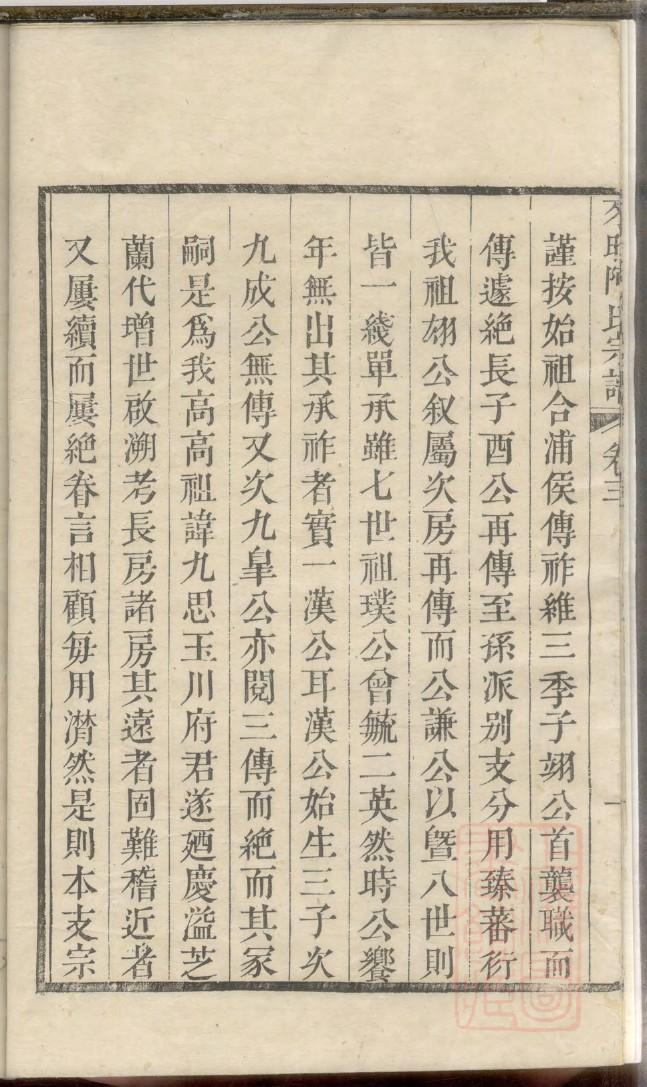 陳氏宗譜 卷三 一
謹按始祖合浦侯傳祚維三季子翊公首襲職而
傳遽絕長子酉公再傳至孫派別支分用臻蕃衍
我祖翃公叙屬次房再傳而公謙公以曁八世則
皆一綫單承雖七世祖璞公曾毓二英然時公饗
年無出其承祚者實一漢公耳漢公始生三子次
九成公無傳又次九臯公亦閱三傳而絕而其冢
嗣是爲我高高祖諱九思玉川府君遂廼慶溢芝
蘭代增世啟溯考長房諸房其遠者固難稽近者
又屢續而屢絕眷言相顧每用潸然是則本支宗